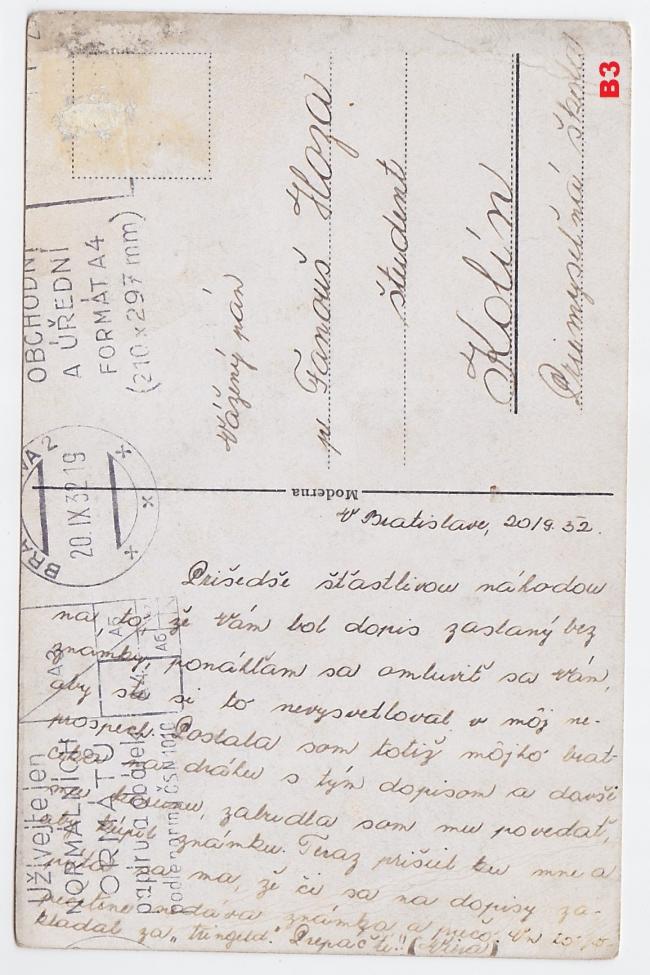 B3
OBCHODNÍ
A ÚŘEDNÍ
FORMÁT A4
(210 x 297 mm)
Vážený pán
Fanouš Hoza
študent
Kolín
Priemyselná škola
BRA VA 2
20.IX 32 19
Moderna
V Bratislave, 20/9. 32.
Prišedše šťastlivou náhodou
na to, že Vám bol dopis zaslaný bez
známky, ponáhľam sa omluviť sa Vám,
aby ste si to nevysvetloval v môj ne-
prospech. Poslala som totiž môjho brat-
na dráhu s tým dopisom a davši
mu korunu, zabudla som mu povedať,
kúpil známku. Teraz prišiel ku mne a
sa ma, že či sa na dopisy za-
známka a prečo.
kladal za „tringeld“. Prepáčte!!
Užívejte jen
NORMÁLNÍCH
FORMÁTŮ
papíru a obálek
podle normy ČSN 1010
A3
A4
A5
A6